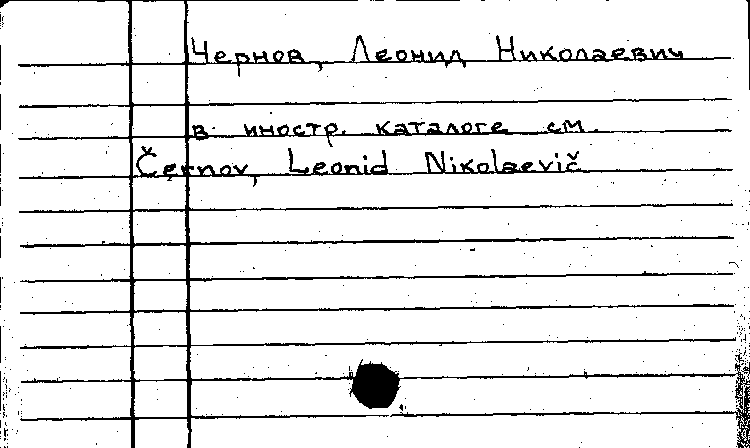 Чернов, Леонид Николаевич
в иностр. каталоге см.
Černov, Leonid Nikolaevič